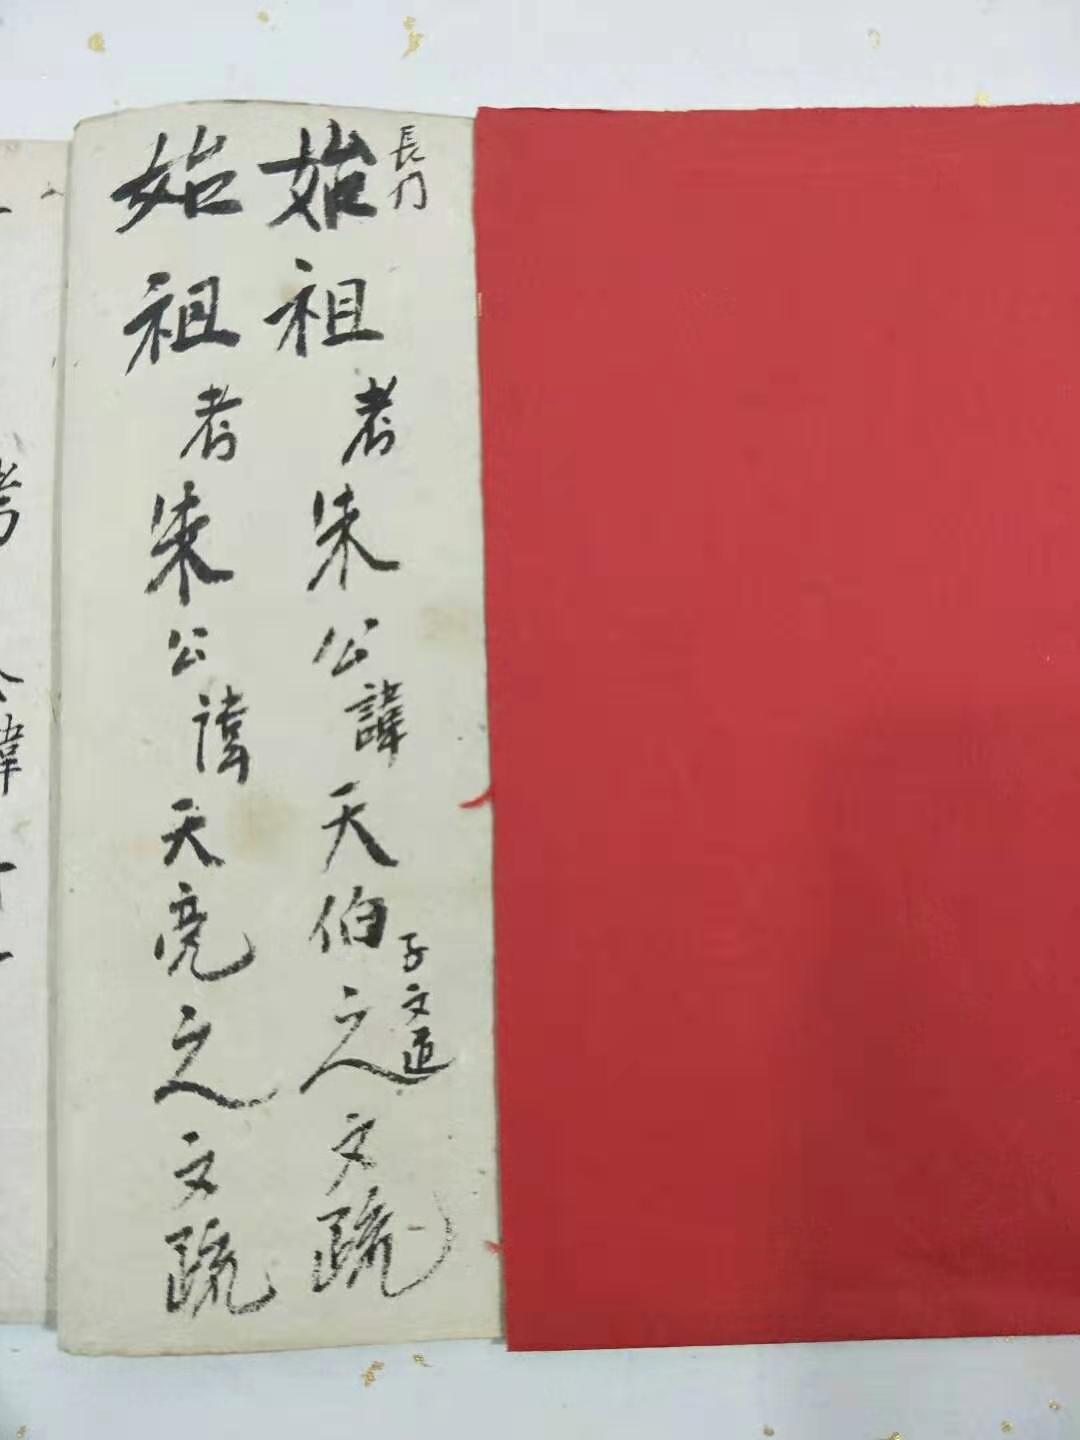 長门
始祖考朱公諱天伯之文疏
子文道
始祖考朱公諱天亮之文疏
考
公諱